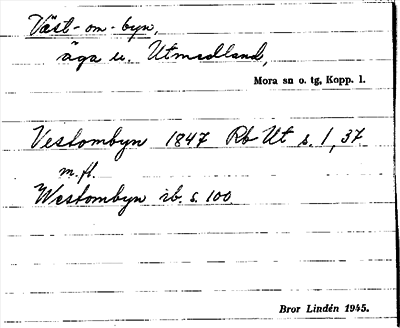 Väst-om-byn,
äga u. Utmedland,
Mora sn o. tg, Kopp. l.
Vestombyn 1847 Rb Ut s. 1, 37
m.fl.
Westombyn ib. s. 100
Bror Lindén 1945.